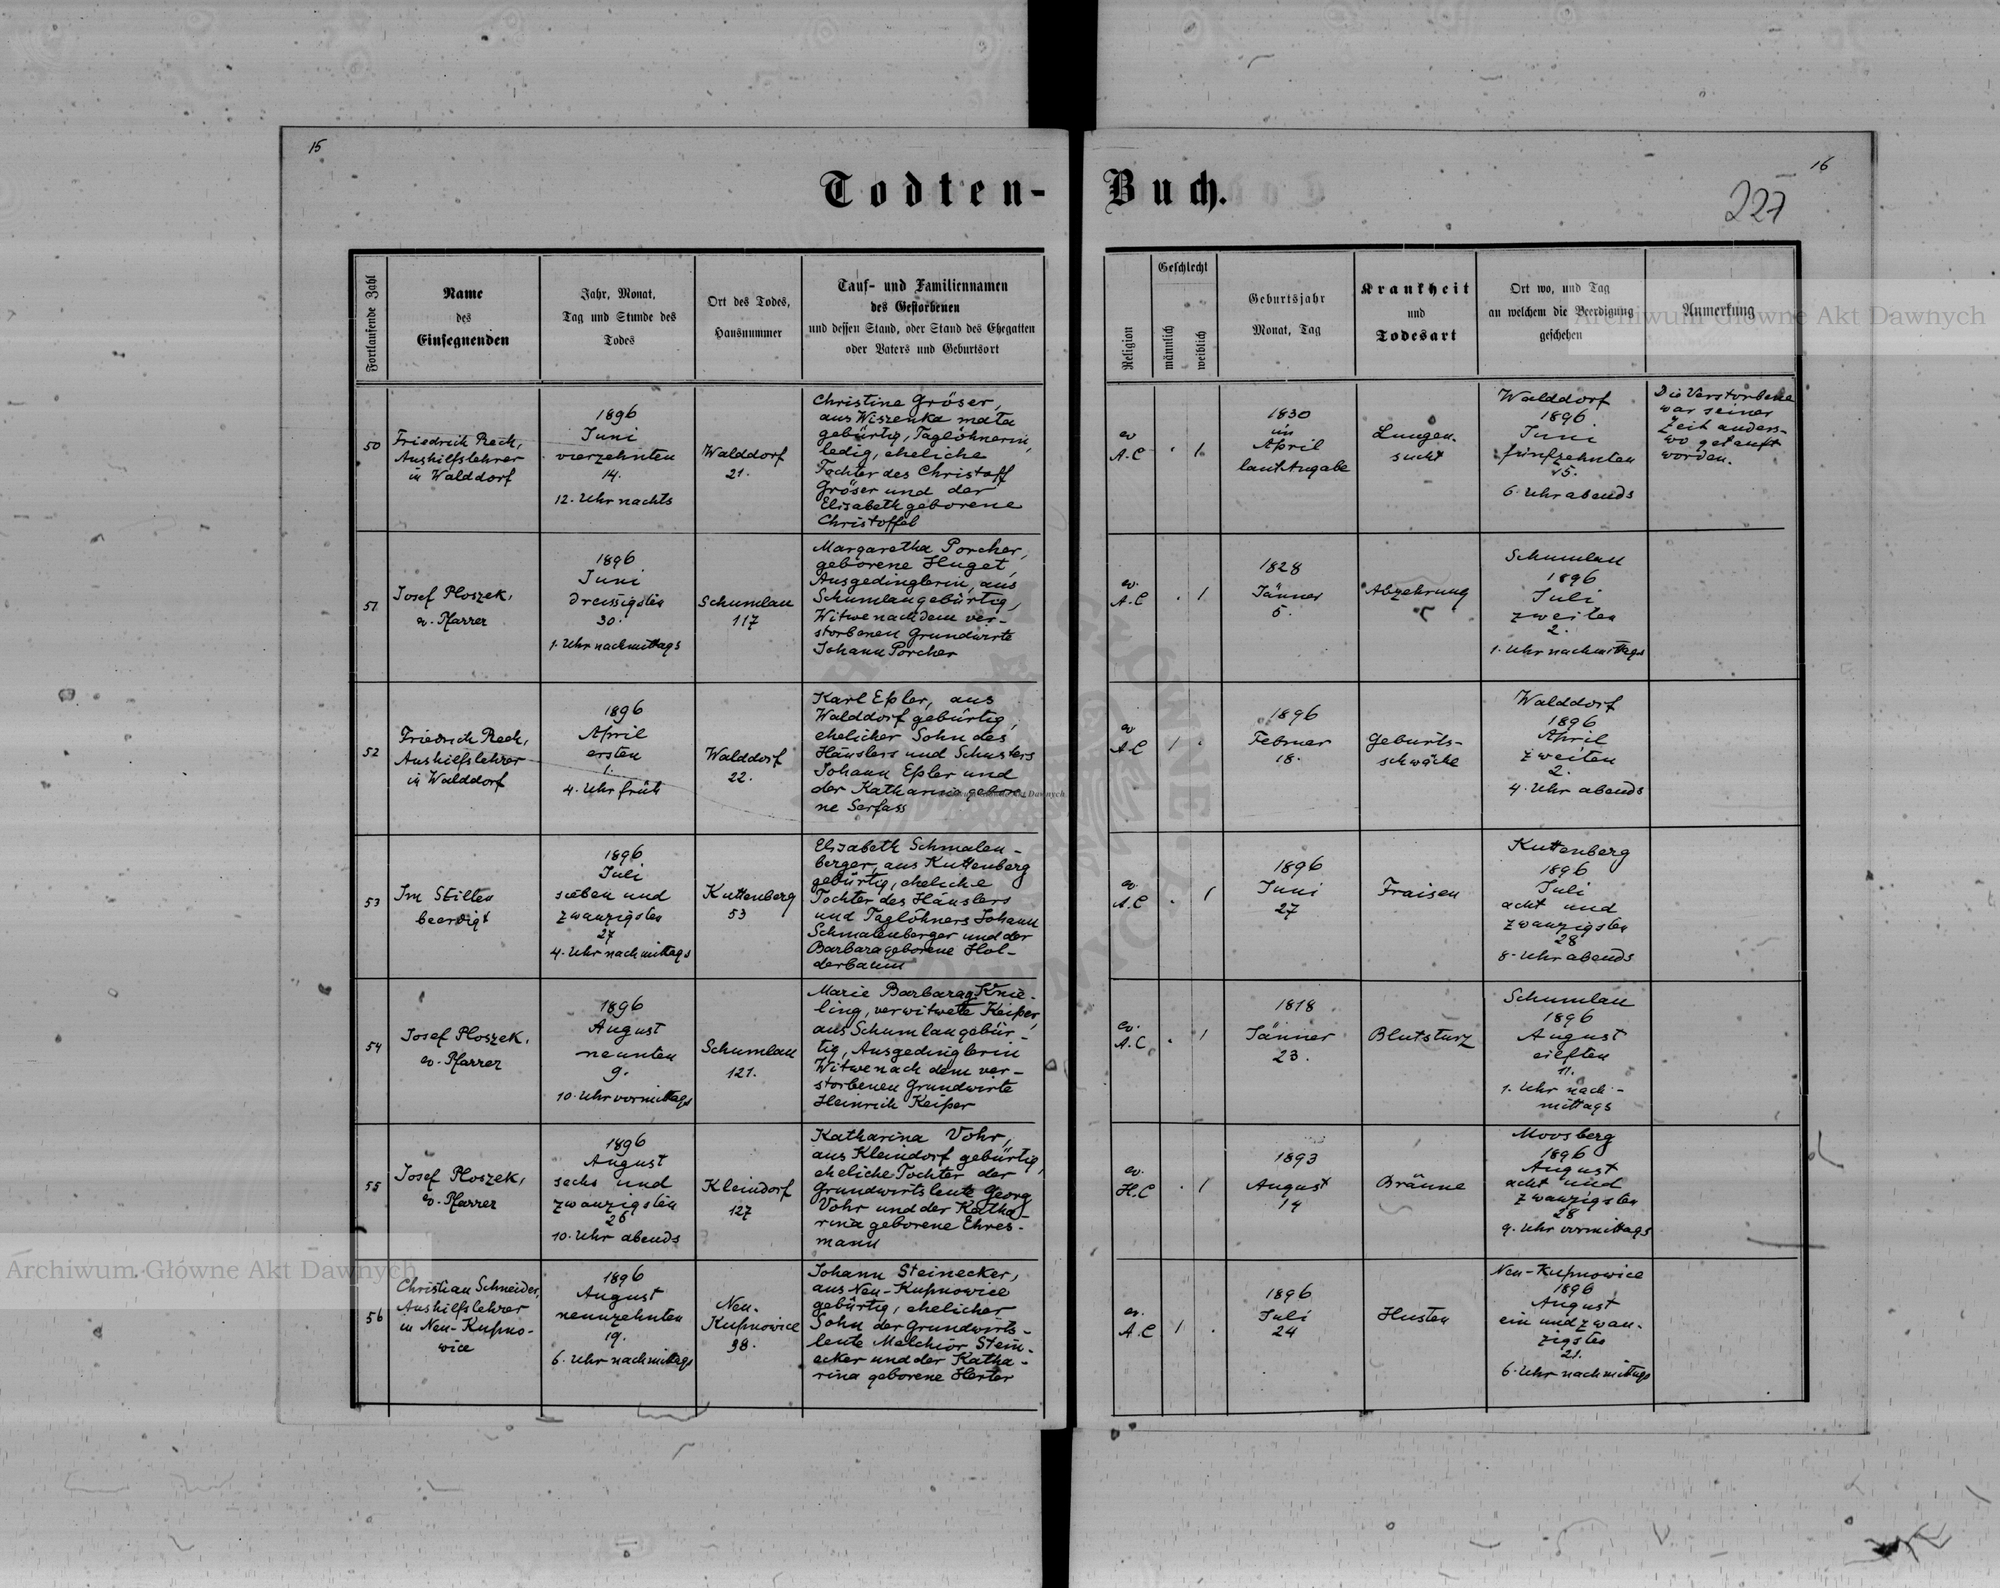 15
16
227
Todten-Buch.
Fortlaufende Zahl
Name
des
Einsegnenden
Jahr, Monat,
Tag und Stunde des
Todes
Ort des Todes,
Hausnummer
Tauf- und Familiennamen
des Gestorbenen
und dessen Stand, oder Stand des Ehegatten
oder Vaters und Geburtsort
Religion
Geschlecht
männlich
weiblich
Geburtsjahr
Monat, Tag
Krankheit
und
Todesart
Ort wo, und Tag
an welchem die Beerdigung
geschehen
Anmerkung
Archiwum Główne Akt Dawnych
50
Friedrich Rech,
Aushilfslehrer
in Walddorf
1896
Juni
vierzehnten
14.
12. Uhr nachts
Walddorf
21.
Christine Gröser,
aus Wiszenka mała
gebürtig, Taglöhnerin,
ledig, eheliche
Tochter des Christoff
Gröser und der
Elisabeth geborene
Christoffel
ev
A.C
. 1.
1830
im
April
laut Angabe
Lungen-
sucht
Walddorf
1896
Juni
fünfzehnten
15.
6. Uhr abends
Die Verstorbene
war seiner
Zeit anders-
wo getauft
worden.
51
Josef Ploszek,
ev. Pfarrer
1896
Juni
dreissigsten
30.
1. Uhr nachmittags
Schumlau
117
Margaretha Porcher,
geborene Huget,
Ausgedinglerin, aus
Schumlau gebürtig,
Witwe nach dem ver-
storbenen Grundwirte
Johann Porcher
ev.
A.C
. 1
1828
Jänner
5.
Abzehrung
Schumlau
1896
Juli
zweiten
2.
1. Uhr nachmittags
52
Friedrich Rech,
Aushilfslehrer
in Walddorf
1896
April
ersten
1.
4. Uhr früh
Walddorf
22.
Karl Eßler, aus
Walddorf gebürtig,
ehelicher Sohn des
Häuslers und Schusters
Johann Eßler und
der Katharina gebore
ne Serfass
ev
A.C
1 .
1896
Februer
18.
Geburts-
schwäche
Walddorf
1896
April
zweiten
2.
4. Uhr abends
53
Im Stillen
beerdigt
1896
Juli
sieben und
zwanzigsten
27
4. Uhr nachmittags
Kuttenberg
53
Elisabeth Schmalen-
berger, aus Kuttenberg
gebürtig, eheliche
Tochter des Häuslers
und Taglöhners Johann
Schmalenberger und der
Barbara geborene Hol-
derbaum
ev.
A.C
. 1
1896
Juni
27
Fraisen
Kuttenberg
1896
Juli
acht und
zwanzigsten
28
8. Uhr abends
54
Josef Ploszek,
ev. Pfarrer
1896
August
neunten
9.
10. Uhr vormittags
Schumlau
121.
Marie Barbara g. Knie-
ling, verwitwete Keiper,
aus Schumlau gebür-
tig, Ausgedinglerin
Witwe nach dem ver-
storbenen Grundwirte
Heinrich Keiper
ev.
A.C.
. 1
1818
Jänner
23.
Blutsturz
Schumlau
1896
August
eilften
11.
1. Uhr nach-
mittags
55
Josef Ploszek,
ev. Pfarrer
1896
August
sechs und
zwanzigsten
26
10. Uhr abends
Kleindorf
127
Katharina Vohr,
aus Kleindorf gebürtig,
eheliche Tochter der
Grundwirtsleute Georg
Vohr und der Katha-
rina geborene Ehres-
mann
ev.
H.C
. 1
1893
August
14
Bräune
Moosberg
1896
August
acht und
zwanzigsten
28
9. Uhr vormittags
56
Christian Schneider,
Aushilfslehrer
in Neu-Kupno-
wice
1896
August
neunzehnten
19.
6. Uhr nachmittags
Neu-
Kupnowice
98.
Johann Steinecker,
aus Neu-Kupnowice
gebürtig, ehelicher
Sohn der Grundwirts-
leute Melchior Stein-
ecker und der Katha-
rina geborene Herter
ev.
A.C
1 .
1896
Juli
24
Husten
Neu-Kupnowice
1896
August
ein und zwan-
zigsten
21.
6. Uhr nachmittags
Archiwum Główne Akt Dawnych